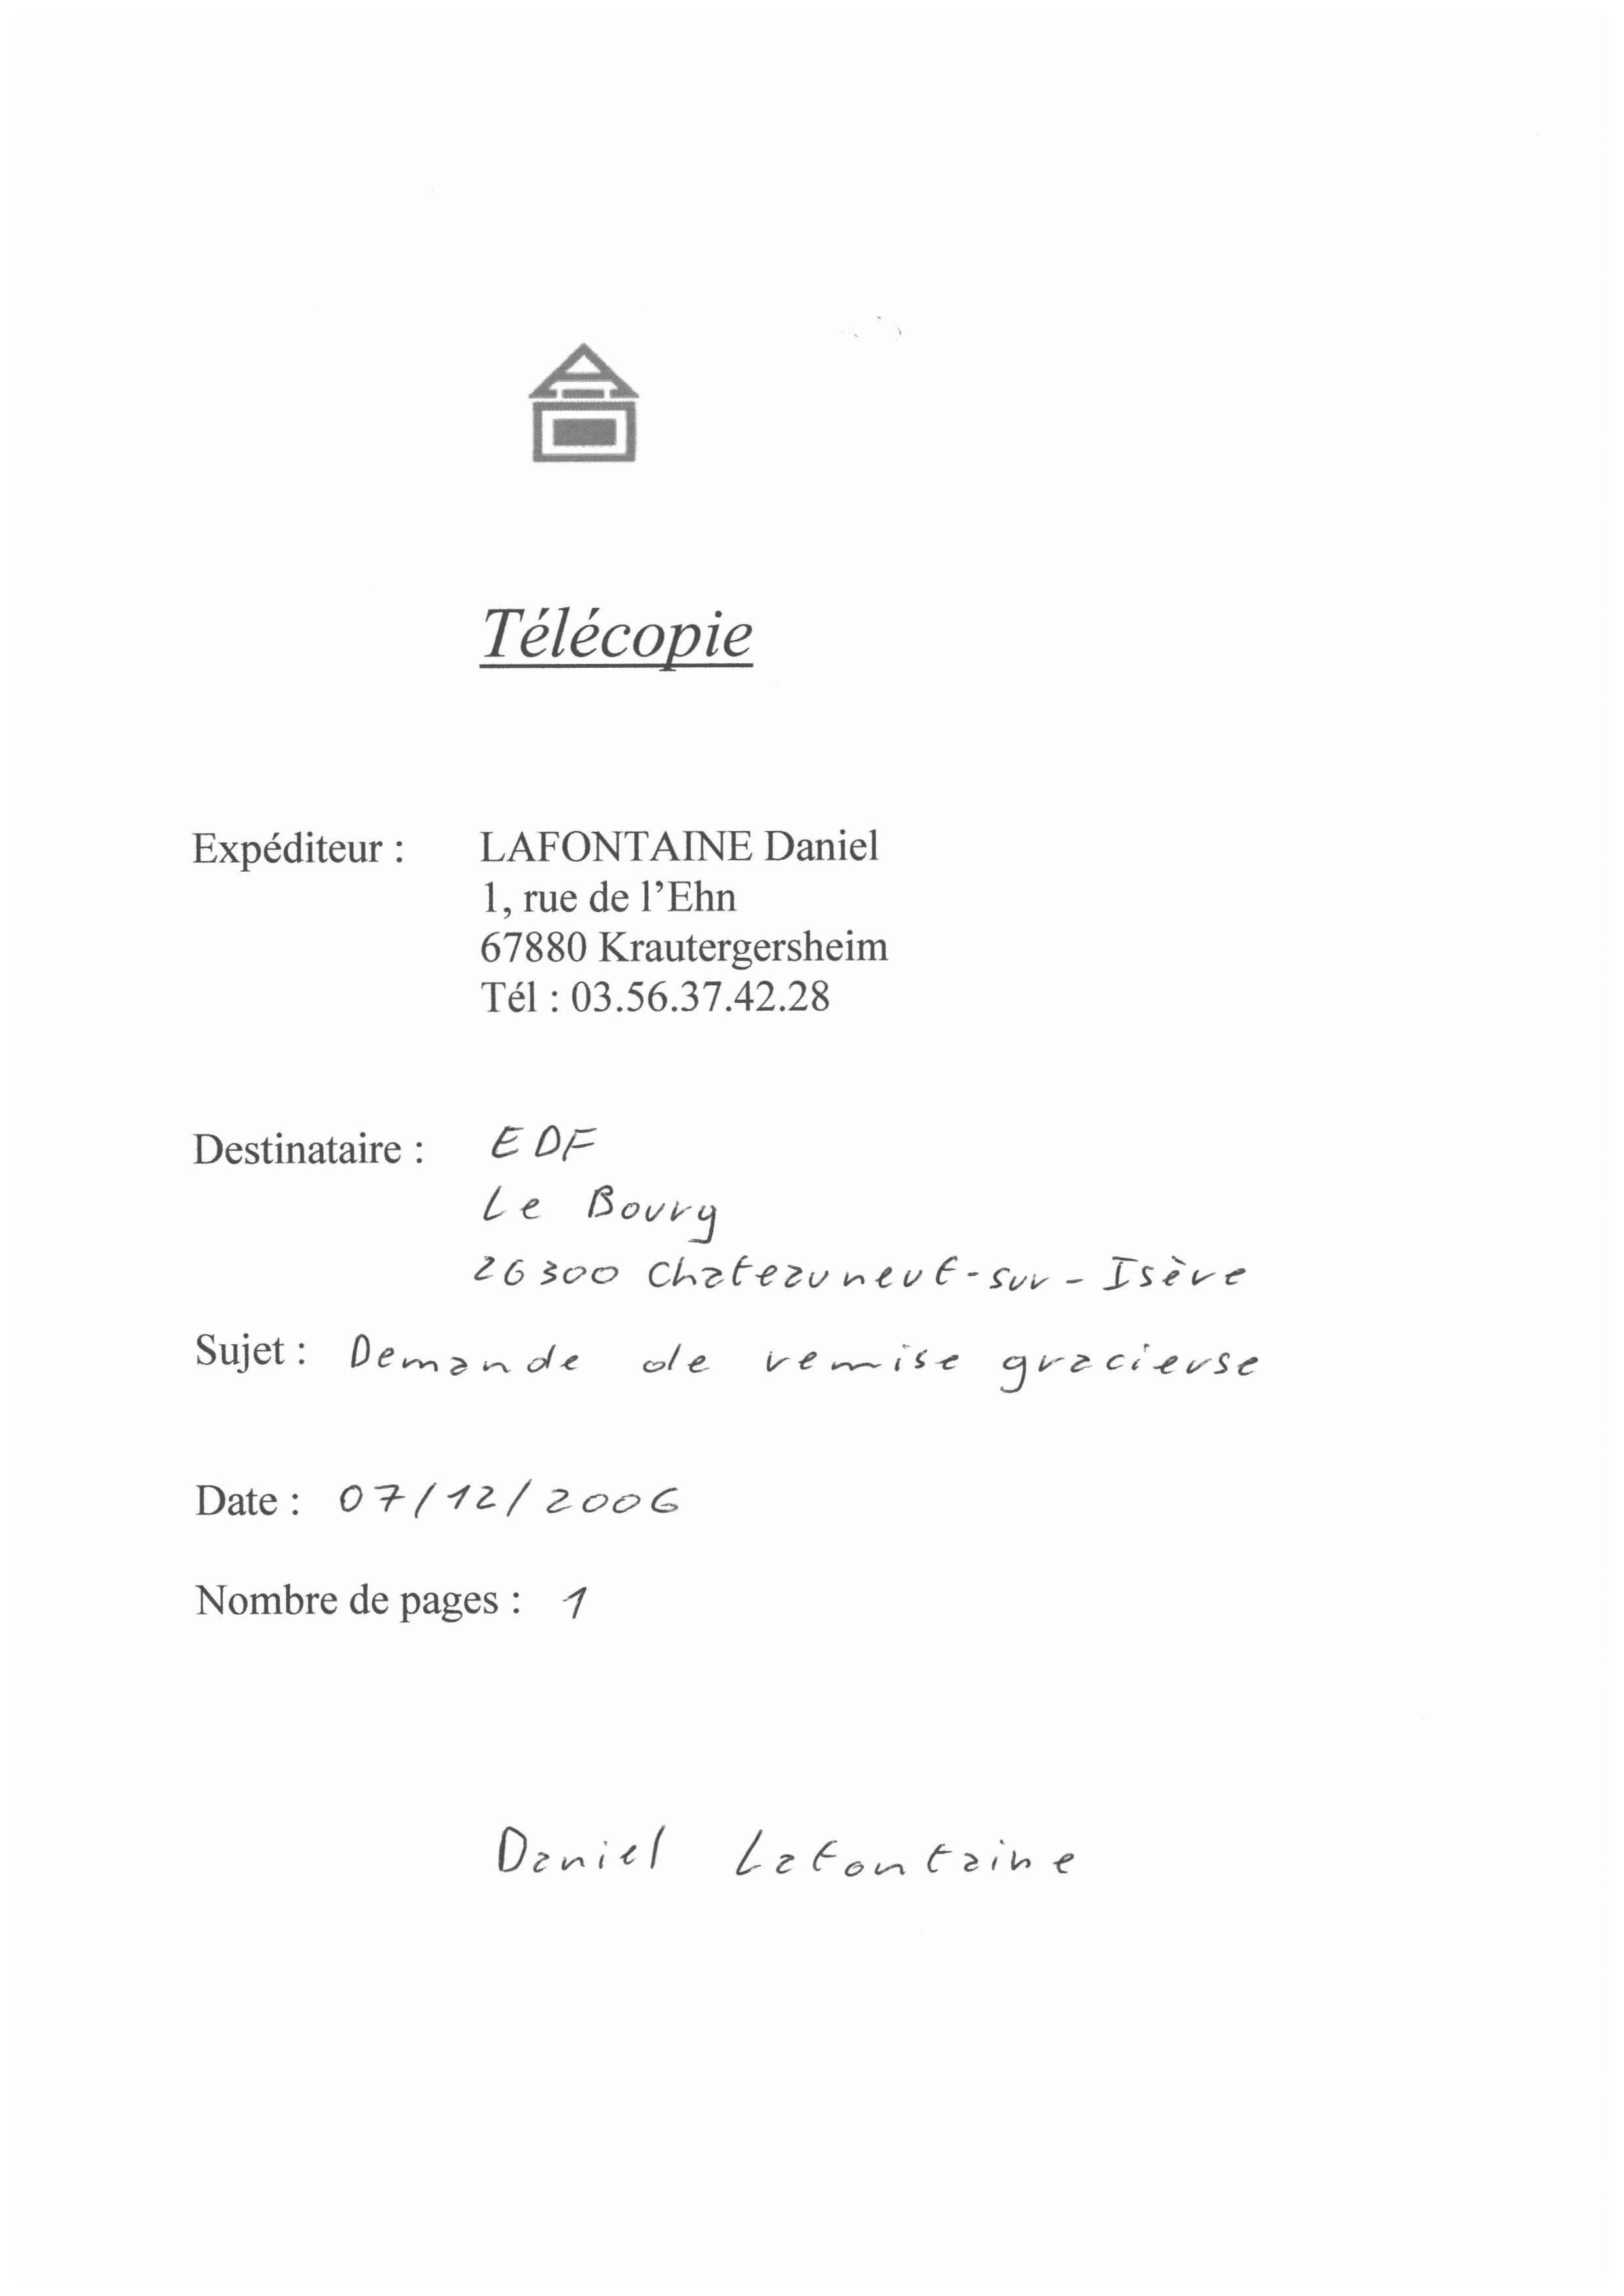 Télécopie
Expéditeur : LAFONTAINE Daniel
1, rue de l'Ehn
67880 Krautergersheim
Tél : 03.56.37.42.28
Destinataire : EDF
Le Bourg
26300 Chateauneuf-sur-Isère
Sujet : Demande de remise gracieuse
Date : 07/12/2006
Nombre de pages : 1
Daniel Lafontaine